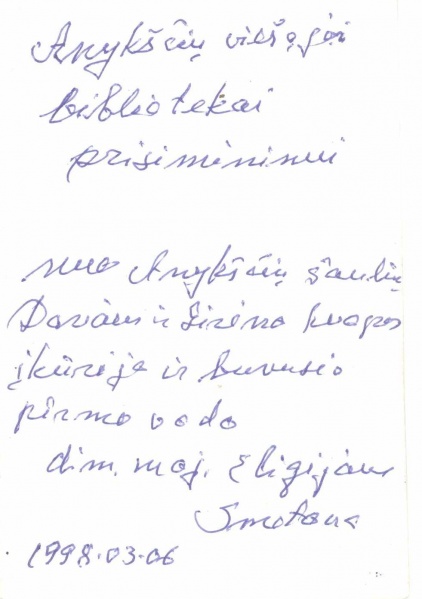 Anykščių viešajai
bibliotekai
prisiminimui
nuo Anykščių šaulių
ir kuopos
įkūrėjo ir buvusio
pirmo vado
dim. maj. Eligijaus
Smetona
1998.03.06